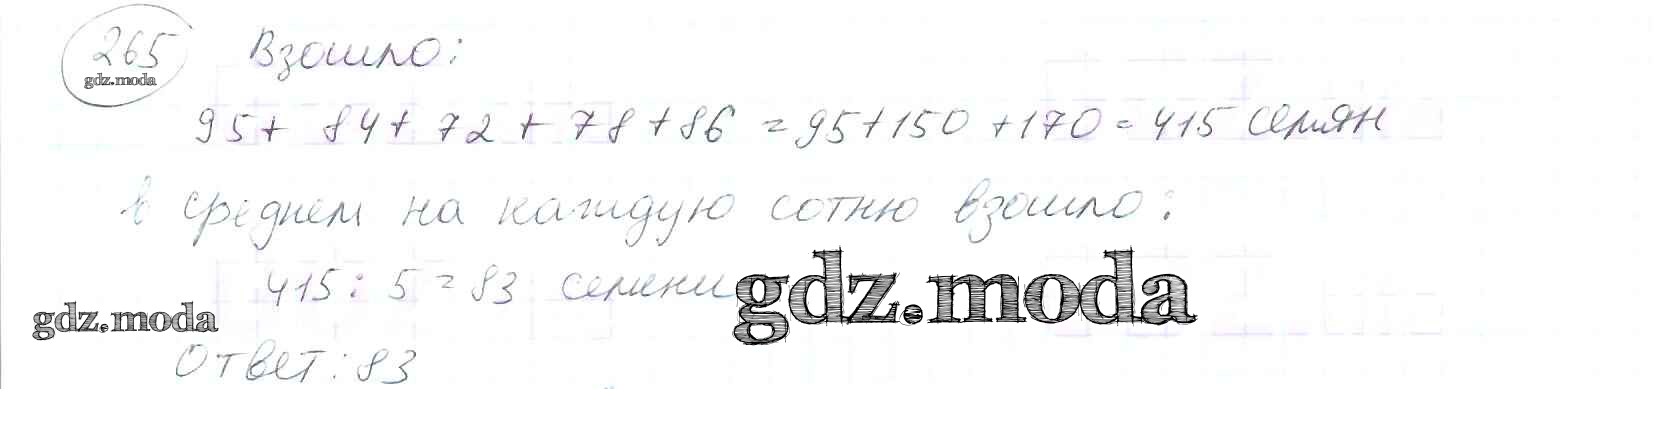 265 Взошло:
gdz.moda
95+ 84+ 72 + 78 +86 = 95+150 +170 = 415 семян
в среднем на каждую сотню взошло:
415 : 5 = 83 семени
gdz.moda
gdz.moda
Ответ: 83